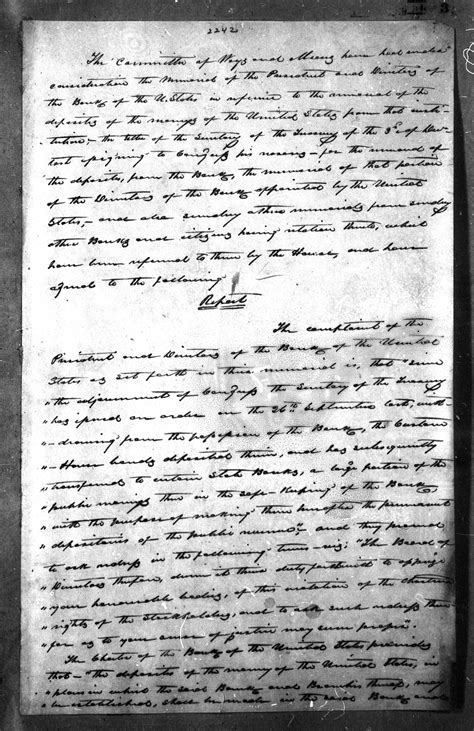 2242
The Committee of Ways and Means have had under
consideration the Memorial of the President and Directors of
the Bank of the U. States in reference to the removal of the
deposites of the moneys of the United States from that insti-
tution; the letter of the Secretary of the Treasury of the 3d of Dec
last assigning to Congress his reasons for the removal of
the deposites, from the Bank, the memorial of that portion
of the Directors of the Bank appointed by the United
States,- and also sundry other memorials from sundry
other Banks and citizens having relation thereto, which
have been referred to them by the House, and have
agreed to the following
Report
The complaint of the
President and Directors of the Bank of the United
States as set forth in their memorial is, that "since
"the adjournment of Congress the Secretary of the Treasury
"has issued an order on the 26th September last, with-
"-drawing from the possession of the Bank, the Custom
"-House bonds deposited there, and has subsequently
"transferred to certain State Banks, a large portion of the
"public moneys then in the safe-keeping of the Bank
"with the purpose of making them hereafter the permanent
"depositories of the public revenue," and they proceed
to ask redress in the following terms - viz: "The Board of
"Directors therefore, deem it their duty forthwith to apprize
"your honourable bodies, of this violation of the chartered
"rights of the Stockholders, and to ask such redress there-
"for as to your sense of justice may seem proper".
The Charter of the Bank of the United States provides
that - "the deposites of the money of the United States, in
"places in which the said Bank and Branches thereof, may
"be established, shall be made in the said Bank and